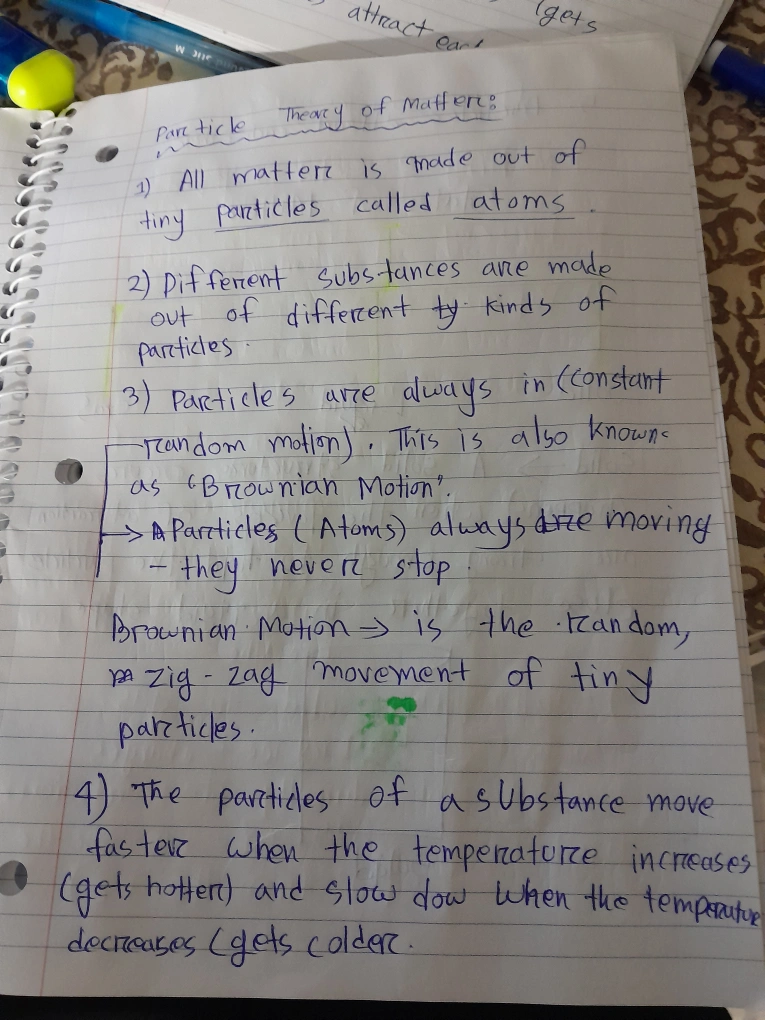 attract
(gets
Particle Theory of Matter:
1) All matter is made out of
tiny particles called atoms.
2) Different substances are made
out of different ty kinds of
particles.
3) Particles are always in (constant
random motion). This is also known
as "Brownian Motion".
→ Particles (Atoms) always are moving
- they never stop.
Brownian Motion → is the random,
zig-zag movement of tiny
particles.
4) The particles of a substance move
faster when the temperature increases
(gets hotter) and slow dow when the temperature
decreases (gets colder.